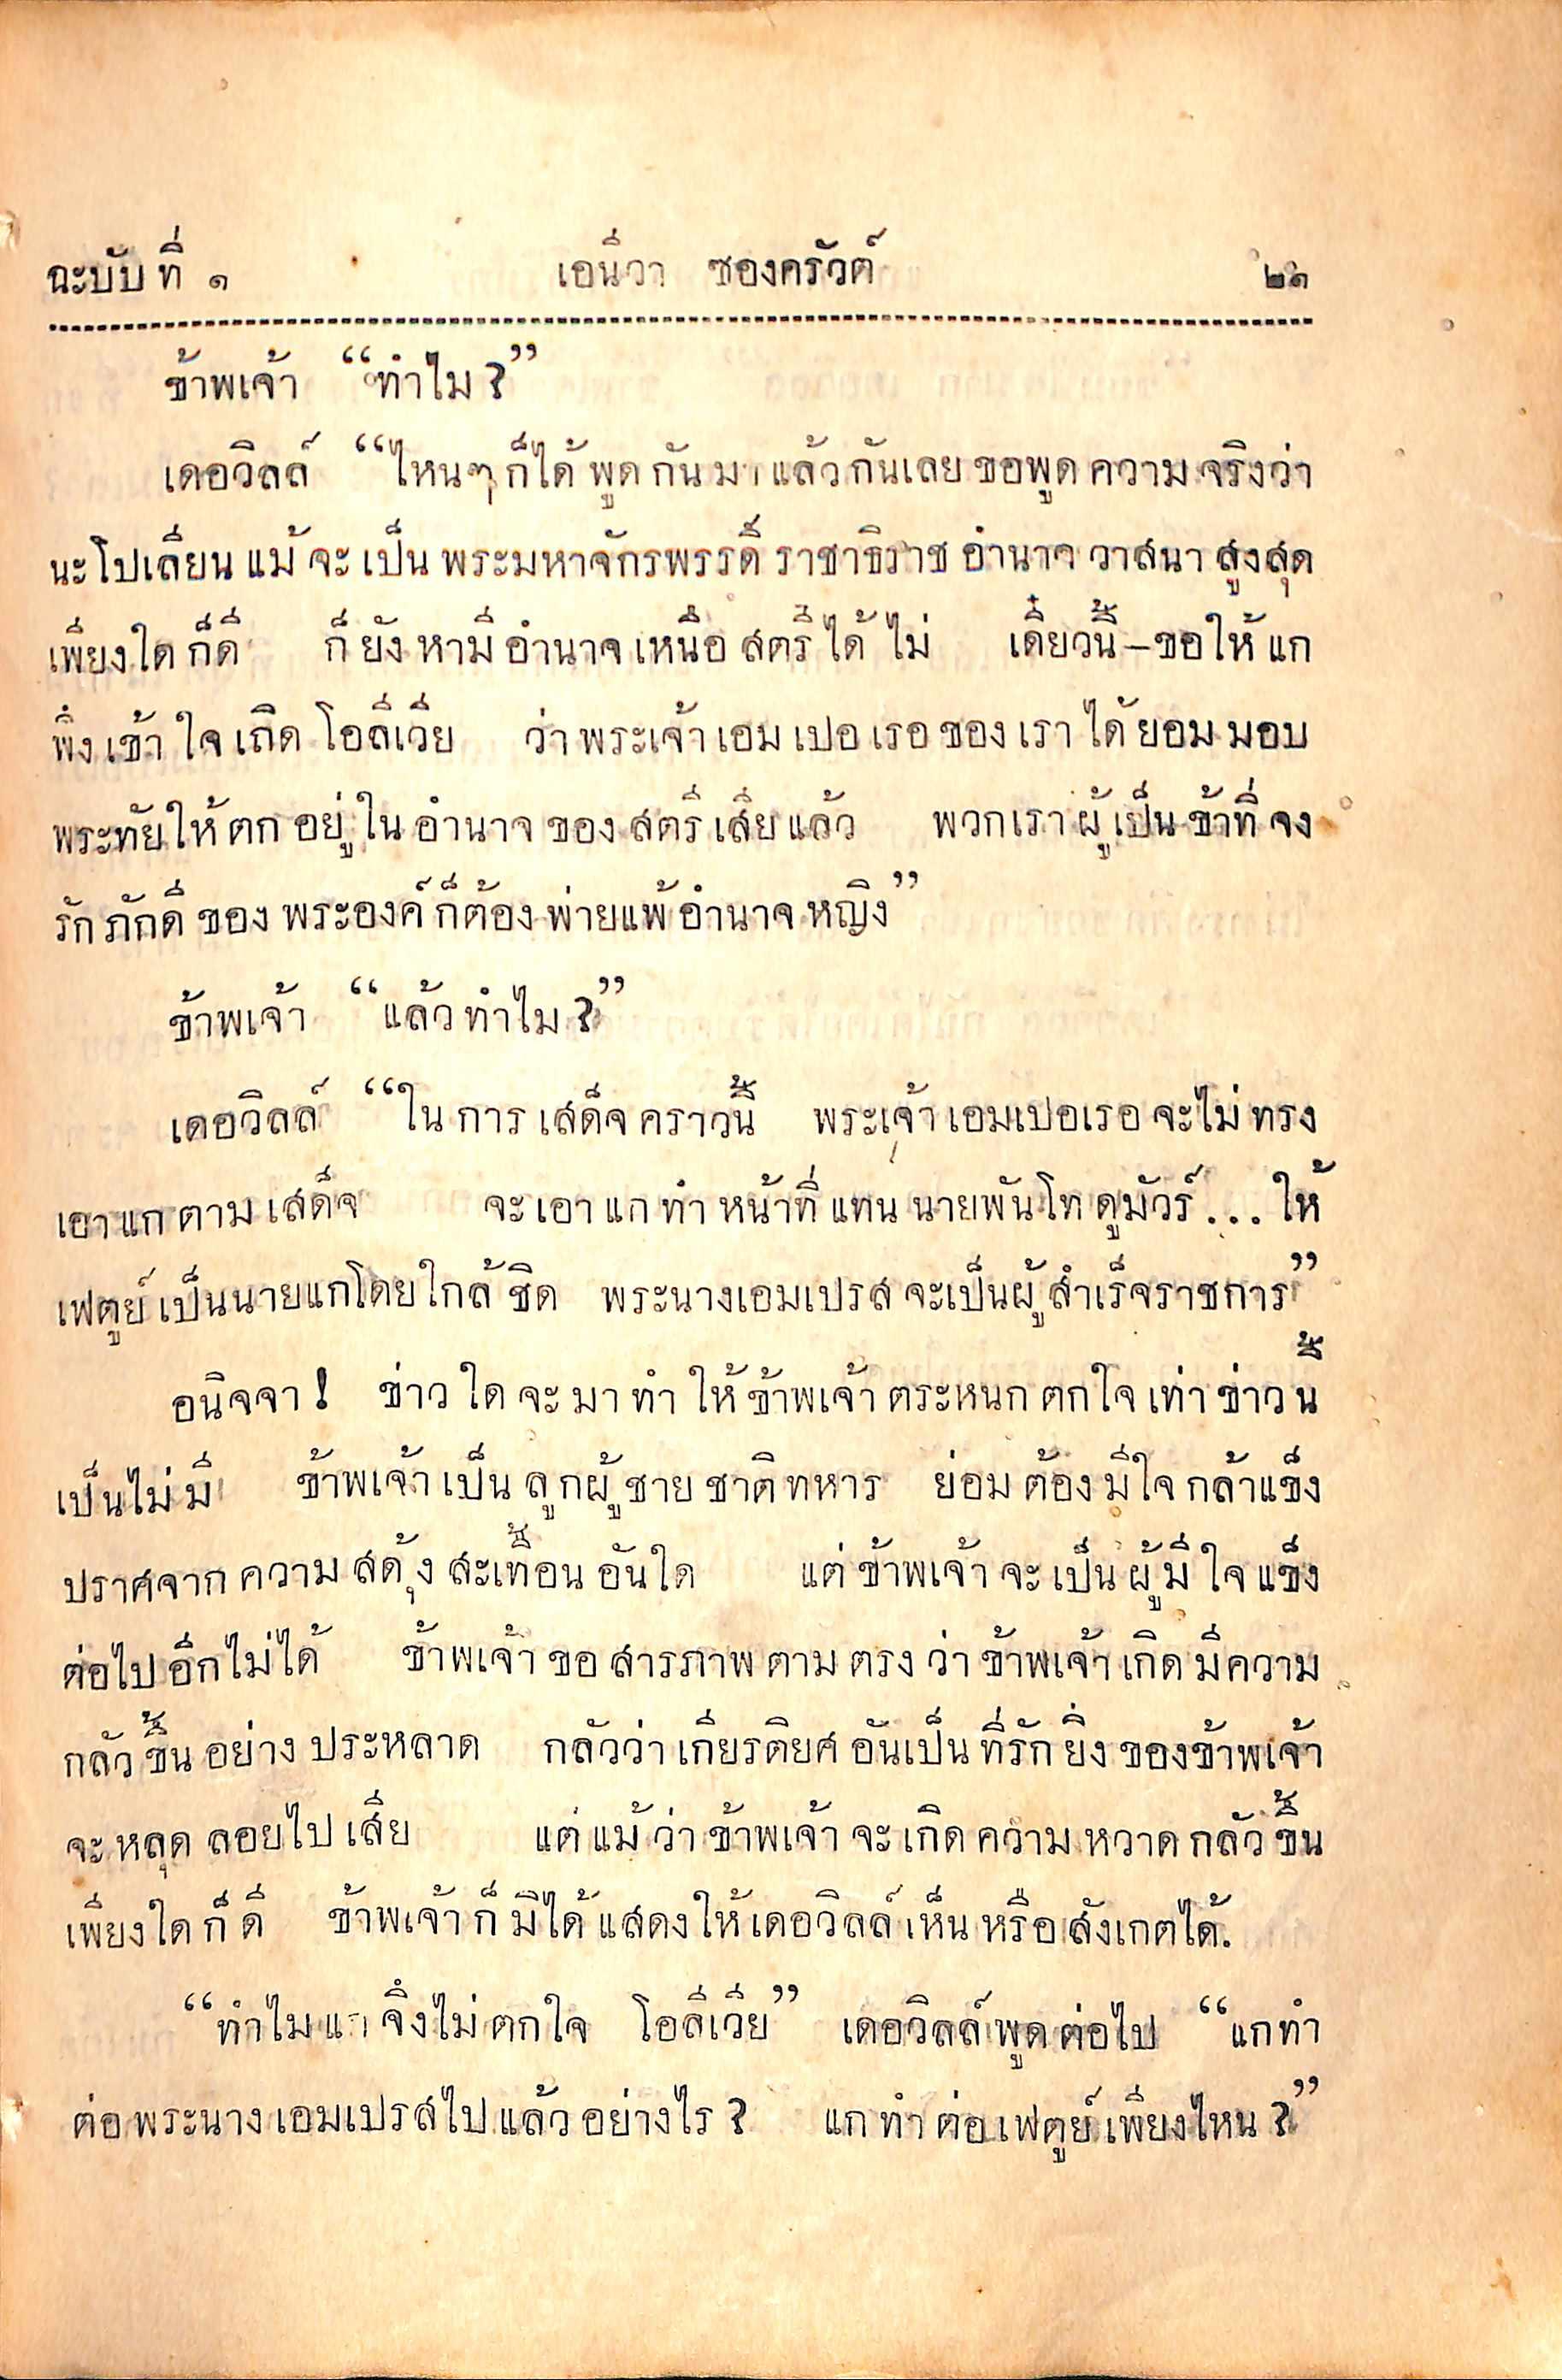 ฉะบับที่ ๑ เอนีวา ซองครัวต์ ๒๑
ข้าพเจ้า “ทำไม?”
เดอวิลล์ “ไหนๆก็ได้พูดกันมาแล้วกันเลยขอพูดความจริงว่า
นะโปเลียนแม้จะเป็นพระมหาจักรพรรดิ์ราชาธิราชอำนาจวาสนาสูงสุด
เพียงใดก็ดี ก็ยังหามีอำนาจเหนือสตรีได้ไม่ เดี๋ยวนี้—ขอให้แก
พึ่งเข้าใจเถิดโอลีเวีย ว่าพระเจ้าเอมเปอเรอของเราได้ยอมมอบ
พระทัยให้ตกอยู่ในอำนาจของสตรีเสียแล้ว พวกเราผู้เป็นข้าที่จง
รักภักดีของพระองค์ก็ต้องพ่ายแพ้อำนาจหญิง”
ข้าพเจ้า “แล้วทำไม?”
เดอวิลล์ “ในการเสด็จคราวนี้ พระเจ้าเอมเปอเรอจะไม่ทรง
เอาแกตามเสด็จ จะเอาแกทำหน้าที่แทนนายพันโทดูมัวร์...ให้
เฟตูย์เป็นนายแกโดยใกล้ชิด พระนางเอมเปรสจะเป็นผู้สำเร็จราชการ”
อนิจจา! ข่าวใดจะมาทำให้ข้าพเจ้าตระหนกตกใจเท่าข่าวนี้
เป็นไม่มี ข้าพเจ้าเป็นลูกผู้ชายชาติทหาร ย่อมต้องมีใจกล้าแข็ง
ปราศจากความสดุ้งสะเทื้อนอันใด แต่ข้าพเจ้าจะเป็นผู้มีใจแข็ง
ต่อไปอีกไม่ได้ ข้าพเจ้าขอสารภาพตามตรงว่าข้าพเจ้าเกิดมีความ
กลัวขึ้นอย่างประหลาด กลัวว่าเกียรติยศอันเป็นที่รักยิ่งของข้าพเจ้า
จะหลุดลอยไปเสีย แต่แม้ว่าข้าพเจ้าจะเกิดความหวาดกลัวขึ้น
เพียงใดก็ดี ข้าพเจ้าก็มิได้แสดงให้เดอวิลล์เห็นหรือสังเกตได้.
“ทำไมแกจึงไม่ตกใจ โอลีเวีย” เดอวิลล์พูดต่อไป “แกทำ
ต่อพระนางเอมเปรสไปแล้วอย่างไร? แกทำต่อเฟตูย์เพียงไหน?”